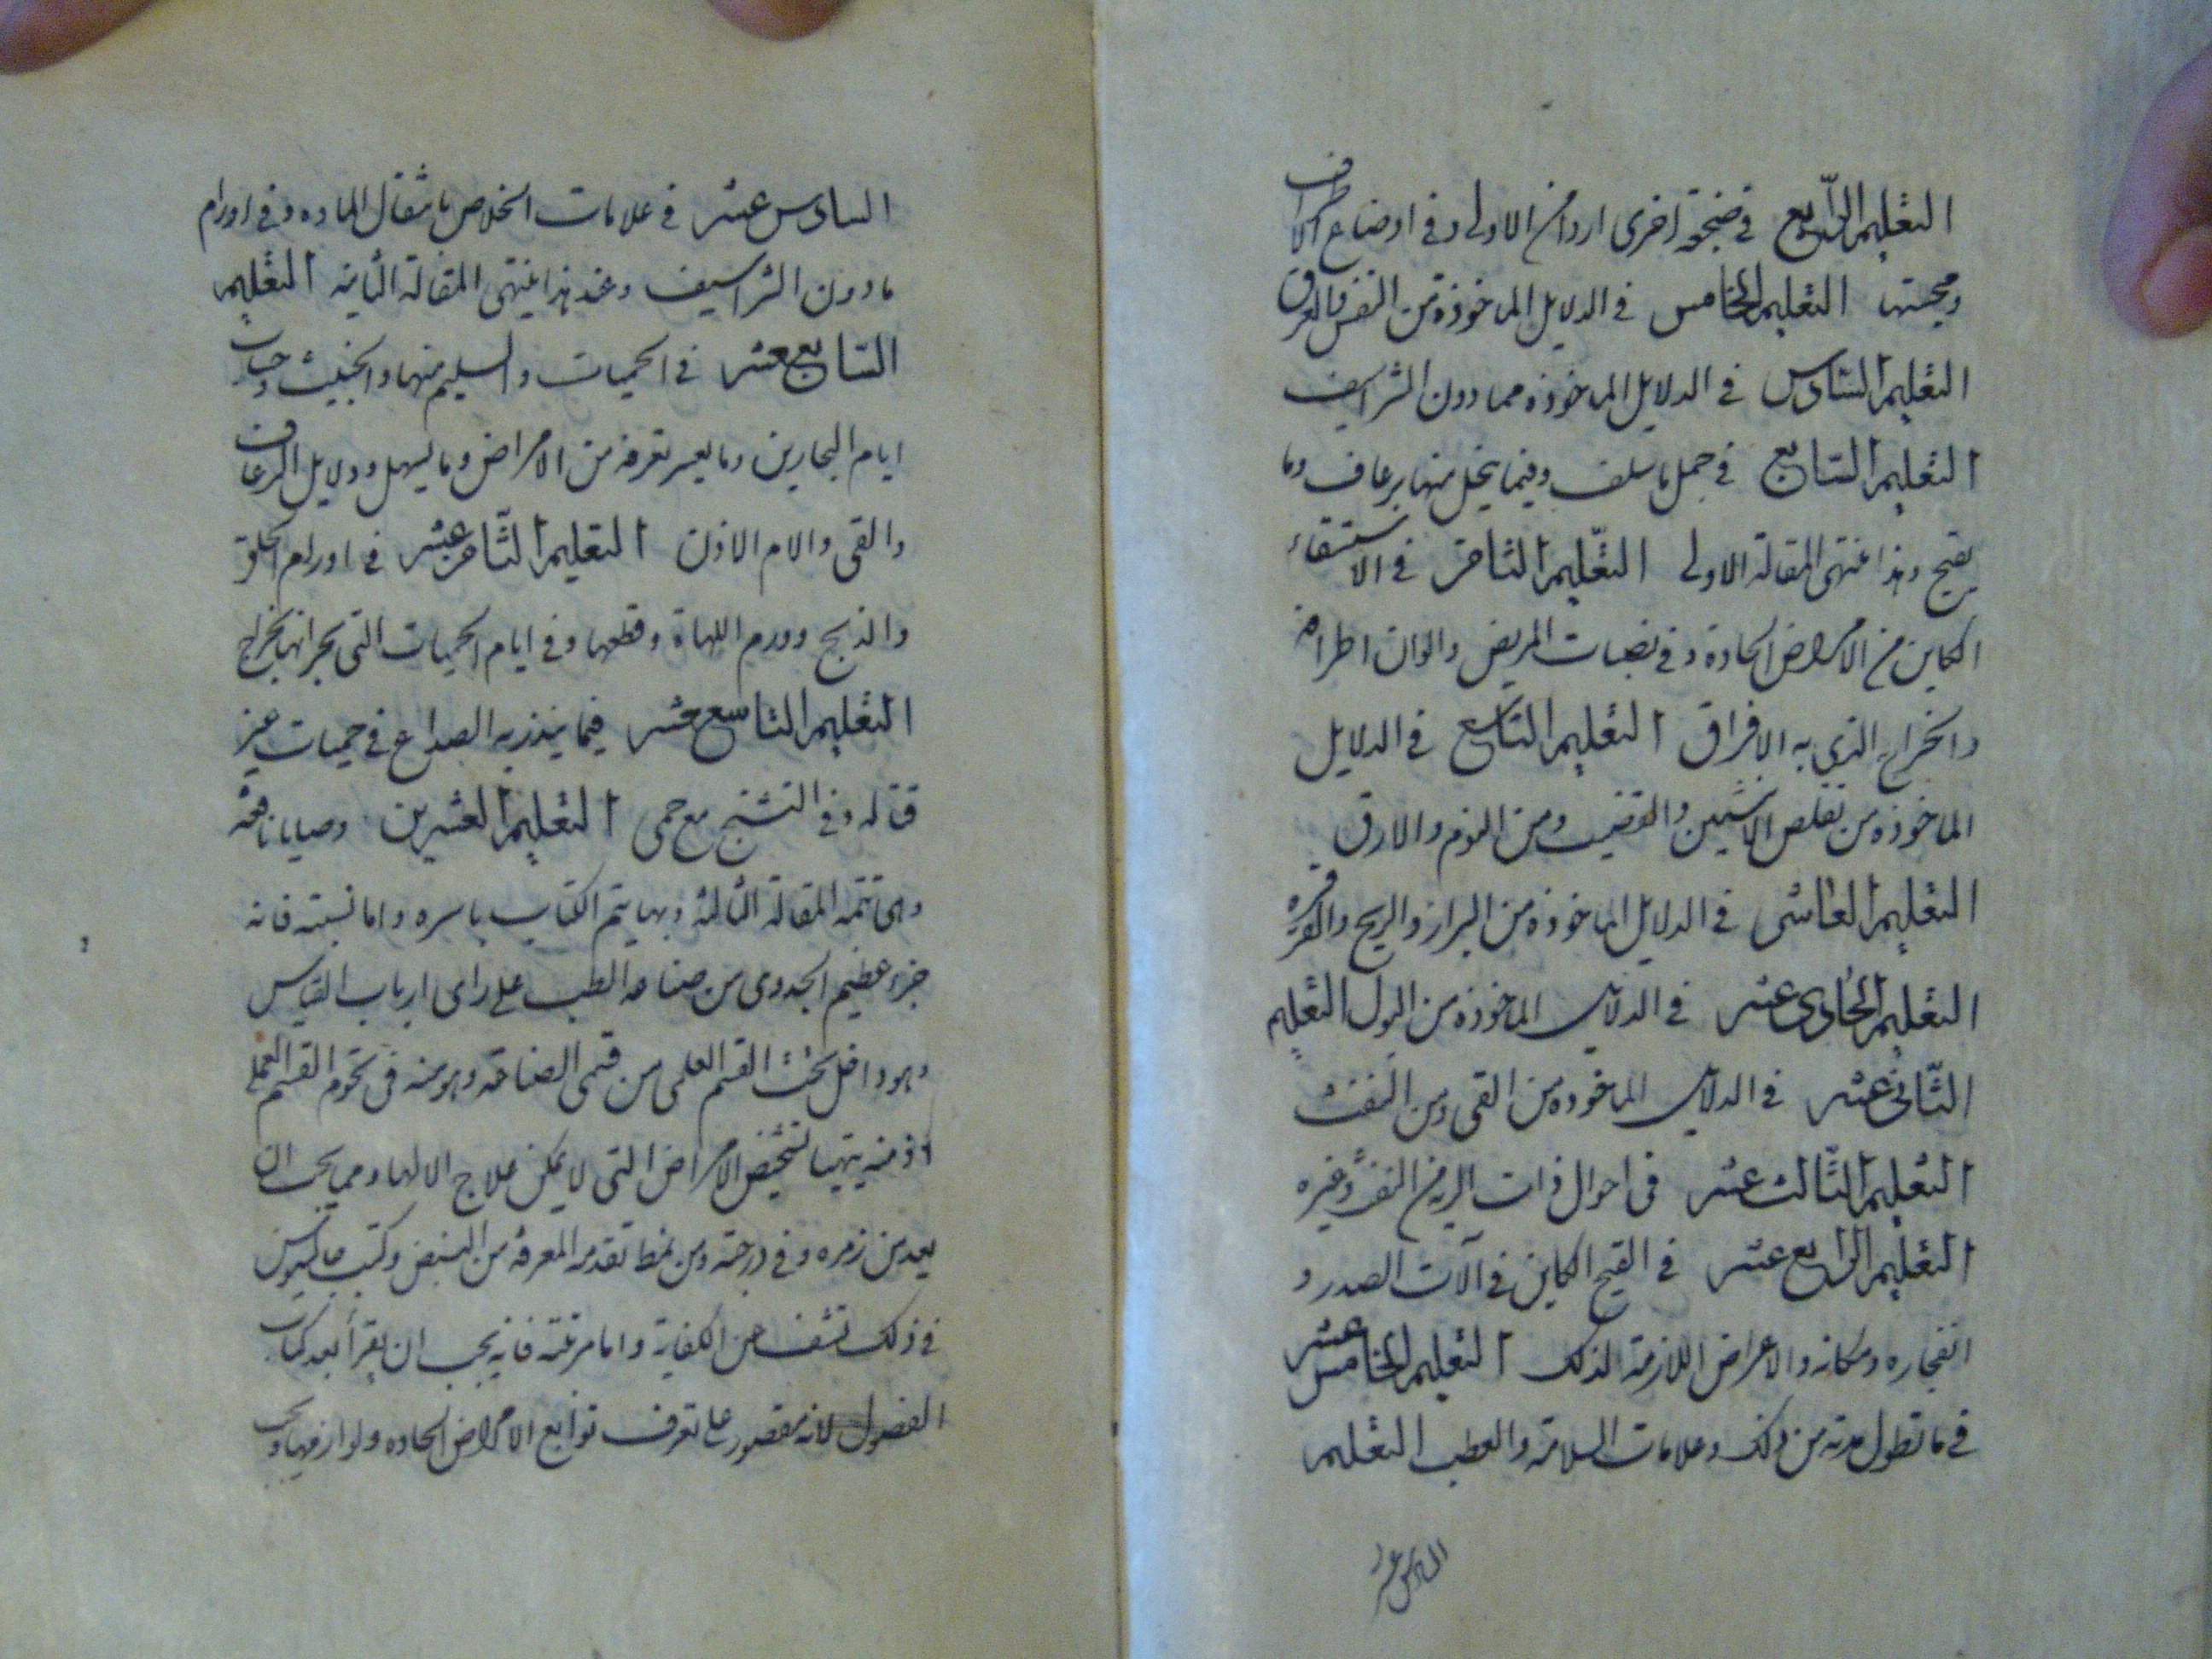 التعليم الرابع في ضجعة اخرى اردا من الاولى وفي اوضاع الاطراف
ومجستها التعليم الخامس في الدلايل الماخوذة من النفس والعرق
التعليم السادس في الدلايل الماخوذه مما دون الشراسيف
التعليم السابع في جمل ما سلف وفيما ينحل منها برعاف وما
يقيح وهذا منتهى المقالة الاولى التعليم الثامن في الاستسقاء
الكاين من الامراض الحادة وفي نصبات المريض والوان اطرافه
والخراج الذي به الافراق التعليم التاسع في الدلايل
الماخوذه من تقلص الانثيين والقضيب ومن النوم والارق
التعليم العاشر في الدلايل الماخوذه من البراز والريح والقرقره
التعليم الحادى عشر في الدلايل الماخوذه من البول التعليم
الثانى عشر في الدلايل الماخوذه من القى ومن النفث
التعليم الثالث عشر فى احوال ذات الريه من النفث وغيره
التعليم الرابع عشر في القيح الكاين في آلات الصدر و
انفجاره ومكانه والاعراض اللازمة لذلك التعليم الخامس عشر
في ما تطول مدته من ذلك وعلامات السلامة والعطب التعليم
السادس عشر
السادس عشر في علامات الخلاص بانتقال الماده وفي اورام
مادون الشراسيف وعند هذا ينتهى المقالة الثانية التعليم
السابع عشر في الحميات والسليم منها والخبيث وحساب
ايام البحارين وما يعسر تعرفه من الامراض وما يسهل ودلايل الرعاف
والقى والام الاذن التعليم الثامن عشر في اورام الحلق
والذبح وورم اللهاة وقطعها وفي ايام الحميات التى بحرانها بخراج
التعليم التاسع عشر فيما ينذر به الصداع في حميات غير
قتاله وفي التشنج مع حمى التعليم العشرين وصايا نافعة
وهى تتمة المقالة الثالثة وبها يتم الكتاب باسره واما نسبته فانه
جزء عظيم الجدوى من صناعة الطب على راى ارباب القياس
وهو داخل تحت القسم العلمى من قسمى الصناعة وهو منه فى تخوم القسم العملى
اذ منه يتهيا تشخيص الامراض التى لا يمكن علاج الا لها ومما يجب ان
يعد من زمره وفي درجته ومن نمط تقدمة المعرفة من النبض وكتب جالينوس
في ذلك تشف عن الكفاية واما مرتبته فانه يجب ان يقرأ بعد كتاب
الفصول لانه مقصور على تعرف توابع الامراض الحاده ولوازمها